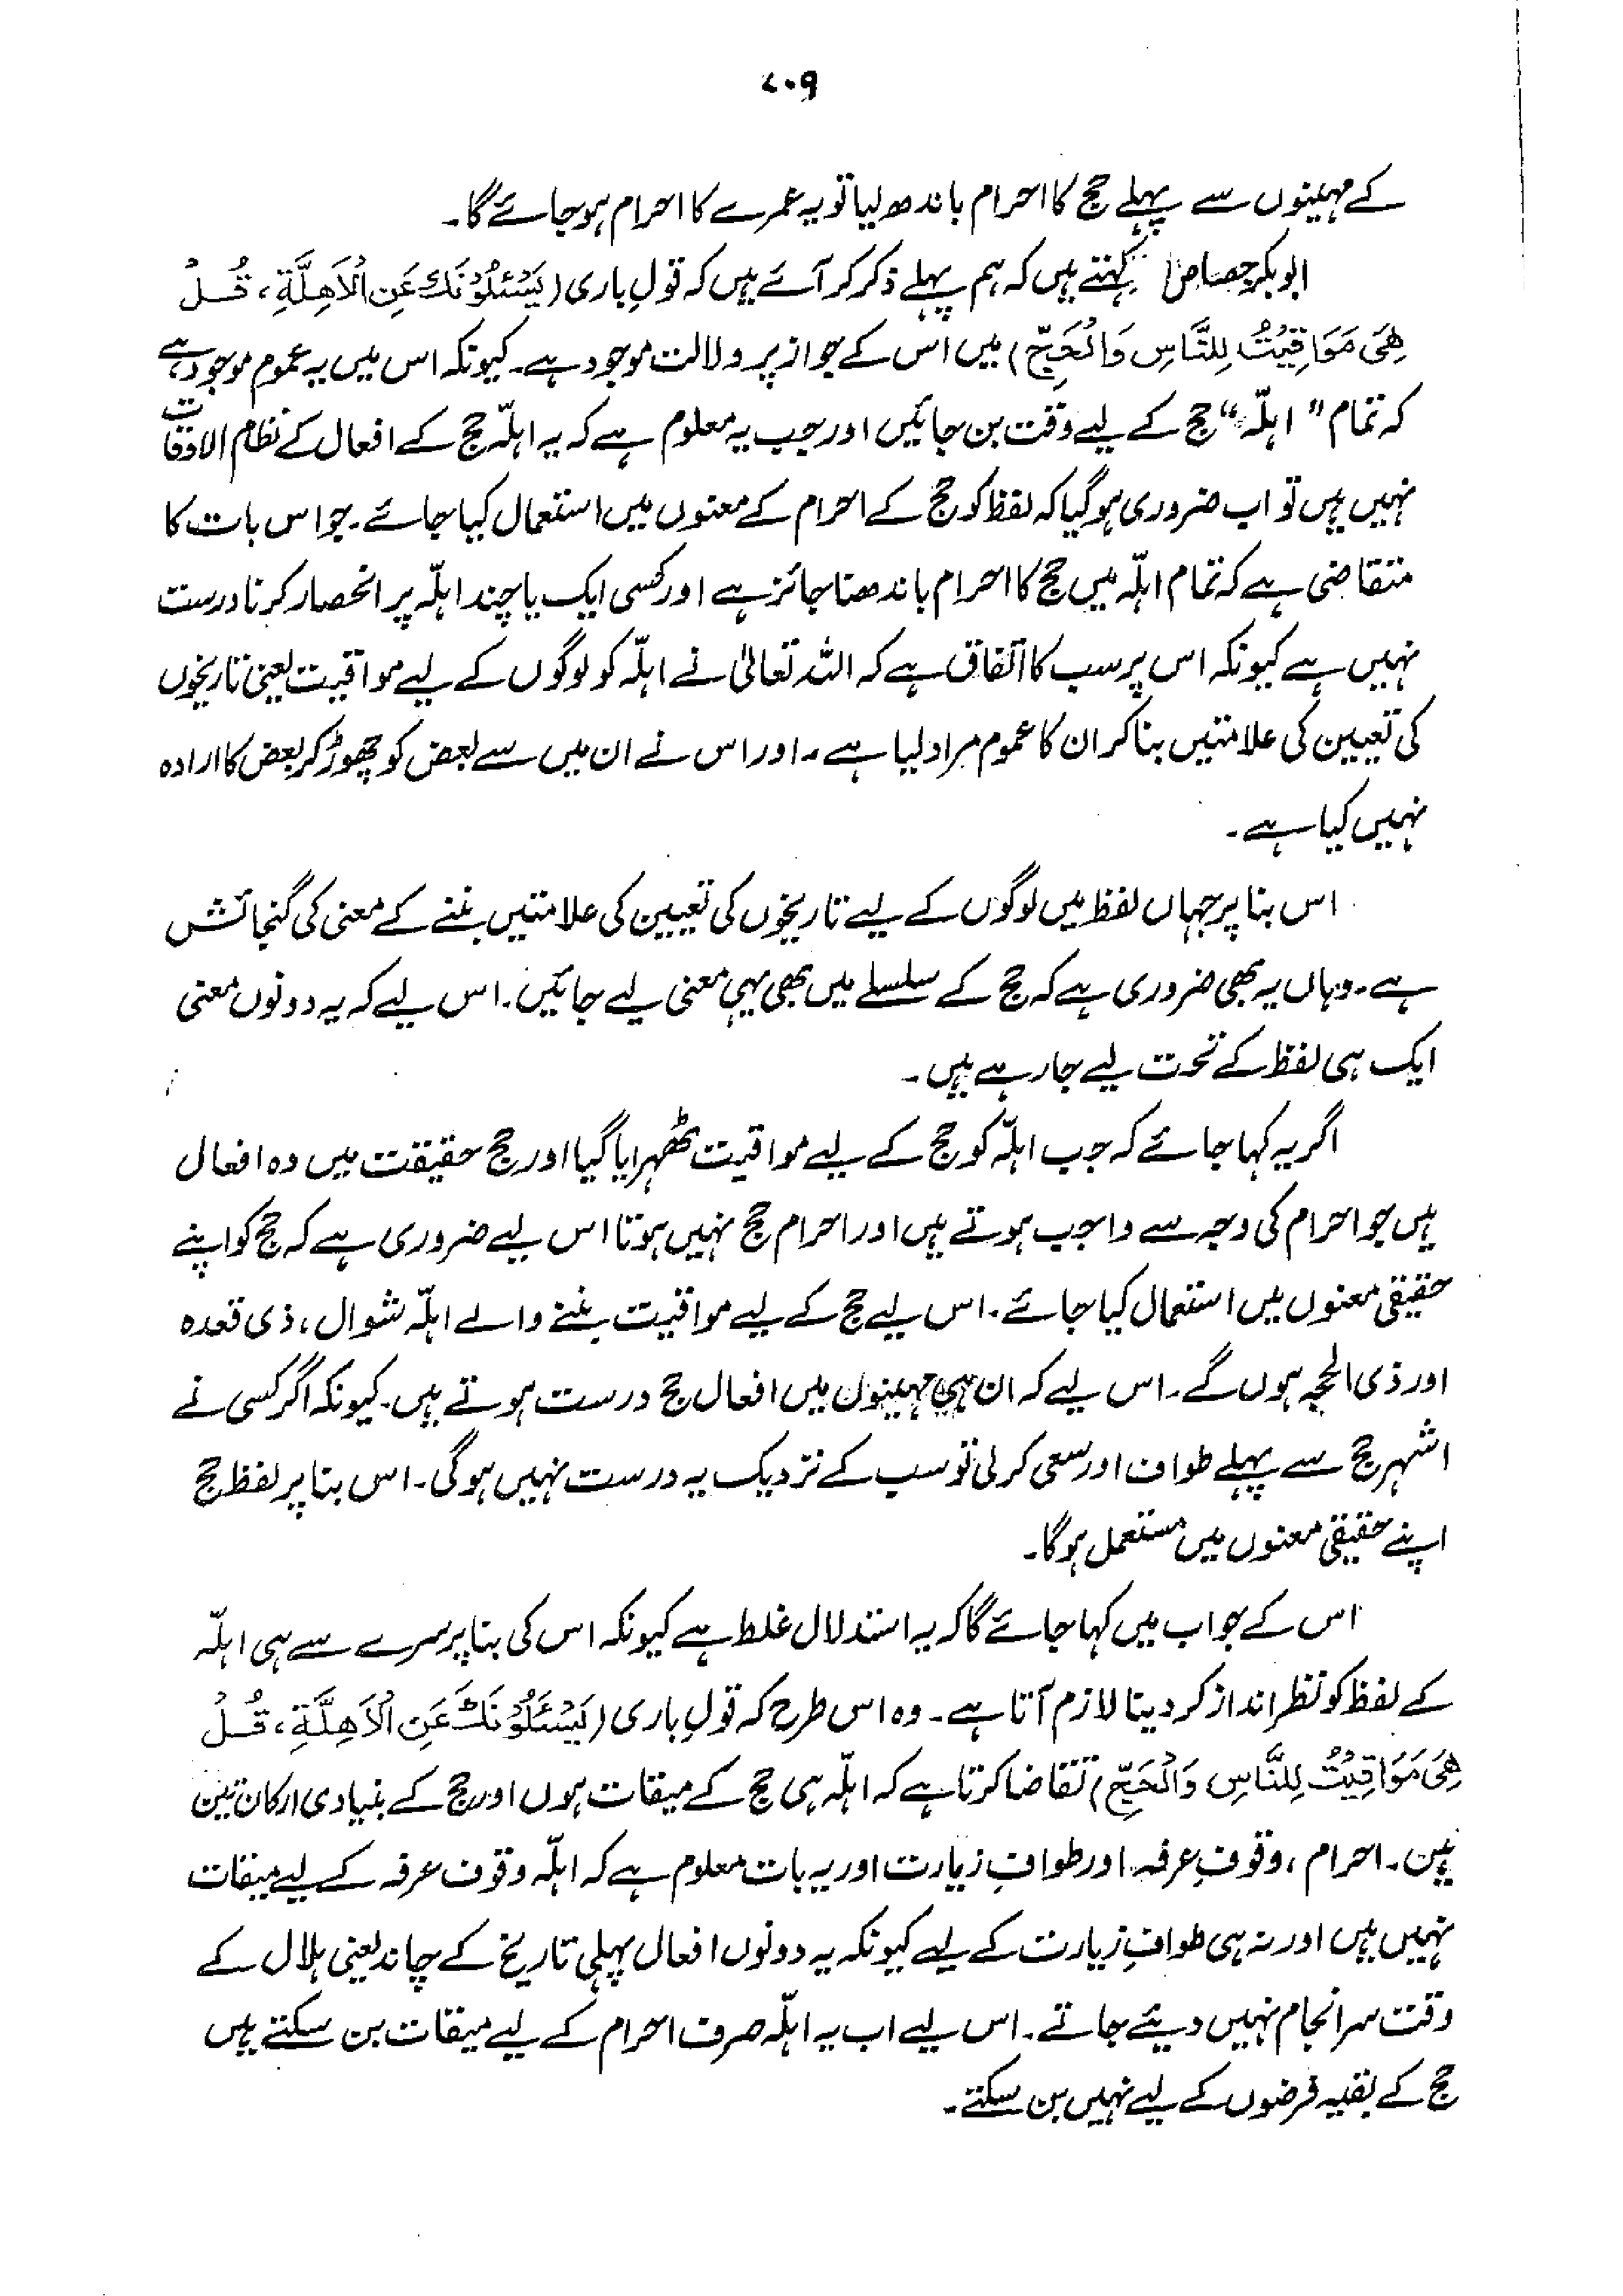 ۷۰۹
کے مہینوں سے پہلے حج کا احرام باندھ لیا تو یہ عمرے کا احرام ہو جائے گا۔
ابوبکر جصاص کہتے ہیں کہ ہم پہلے ذکر کر آئے ہیں کہ قولِ باری (یَسْئَلُوْنَكَ عَنِ الْاَهِلَّةِ، قُلْ
هِیَ مَوَاقِیْتُ لِلنَّاسِ وَالْحَجِّ) میں اس کے جواز پر دلالت موجود ہے۔ کیونکہ اس میں یہ عموم موجود ہے
کہ تمام "اہلّہ" حج کے لیے وقت بن جائیں اور جب یہ معلوم ہے کہ یہ اہلّہ حج کے افعال کے نظام الاوقات
نہیں ہیں تو اب ضروری ہو گیا کہ لفظ کو حج کے احرام کے معنوں میں استعمال کیا جائے۔ جو اس بات کا
متقاضی ہے کہ تمام اہلّہ میں حج کا احرام باندھنا جائز ہے اور کسی ایک یا چند اہلّہ پر انحصار کرنا درست
نہیں ہے کیونکہ اس پر سب کا اتفاق ہے کہ اللہ تعالیٰ نے اہلّہ کو لوگوں کے لیے مواقیت یعنی تاریخوں
کی تعیین کی علامتیں بنا کر ان کا عموم مراد لیا ہے۔ اور اس نے ان میں سے بعض کو چھوڑ کر بعض کا ارادہ
نہیں کیا ہے۔
اس بنا پر جہاں لفظ میں لوگوں کے لیے تاریخوں کی تعیین کی علامتیں بننے کے معنی کی گنجائش
ہے۔ وہاں یہ بھی ضروری ہے کہ حج کے سلسلے میں بھی یہی معنی لیے جائیں۔ اس لیے کہ یہ دونوں معنی
ایک ہی لفظ کے تحت لیے جا رہے ہیں۔
اگر یہ کہا جائے کہ جب اہلّہ کو حج کے لیے مواقیت ٹھہرایا گیا اور حج حقیقت میں وہ افعال
ہیں جو احرام کی وجہ سے واجب ہوتے ہیں اور احرام حج نہیں ہوتا اس لیے ضروری ہے کہ حج کو اپنے
حقیقی معنوں میں استعمال کیا جائے۔ اس لیے حج کے لیے مواقیت بننے والے اہلّہ شوال، ذی قعدہ
اور ذی الحجہ ہوں گے۔ اس لیے کہ ان ہی مہینوں میں افعال حج درست ہوتے ہیں۔ کیونکہ اگر کسی نے
اشہر حج سے پہلے طواف اور سعی کر لی تو سب کے نزدیک یہ درست نہیں ہوگی۔ اس بنا پر لفظ حج
اپنے حقیقی معنوں میں مستعمل ہوگا۔
اس کے جواب میں کہا جائے گا کہ یہ استدلال غلط ہے کیونکہ اس کی بنا پر سرے سے ہی اہلّہ
کے لفظ کو نظر انداز کر دینا لازم آتا ہے۔ وہ اس طرح کہ قولِ باری (یَسْئَلُوْنَكَ عَنِ الْاَهِلَّةِ، قُلْ
هِیَ مَوَاقِیْتُ لِلنَّاسِ وَالْحَجِّ) تقاضا کرتا ہے کہ اہلّہ ہی حج کے میقات ہوں اور حج کے بنیادی ارکان تین
ہیں۔ احرام، وقوفِ عرفہ اور طوافِ زیارت اور یہ بات معلوم ہے کہ اہلّہ وقوف عرفہ کے لیے میقات
نہیں ہیں اور نہ ہی طوافِ زیارت کے لیے کیونکہ یہ دونوں افعال پہلی تاریخ کے چاند یعنی ہلال کے
وقت سرانجام نہیں دیئے جاتے۔ اس لیے اب یہ اہلّہ صرف احرام کے لیے میقات بن سکتے ہیں
حج کے بقیہ فرضوں کے لیے نہیں بن سکتے۔